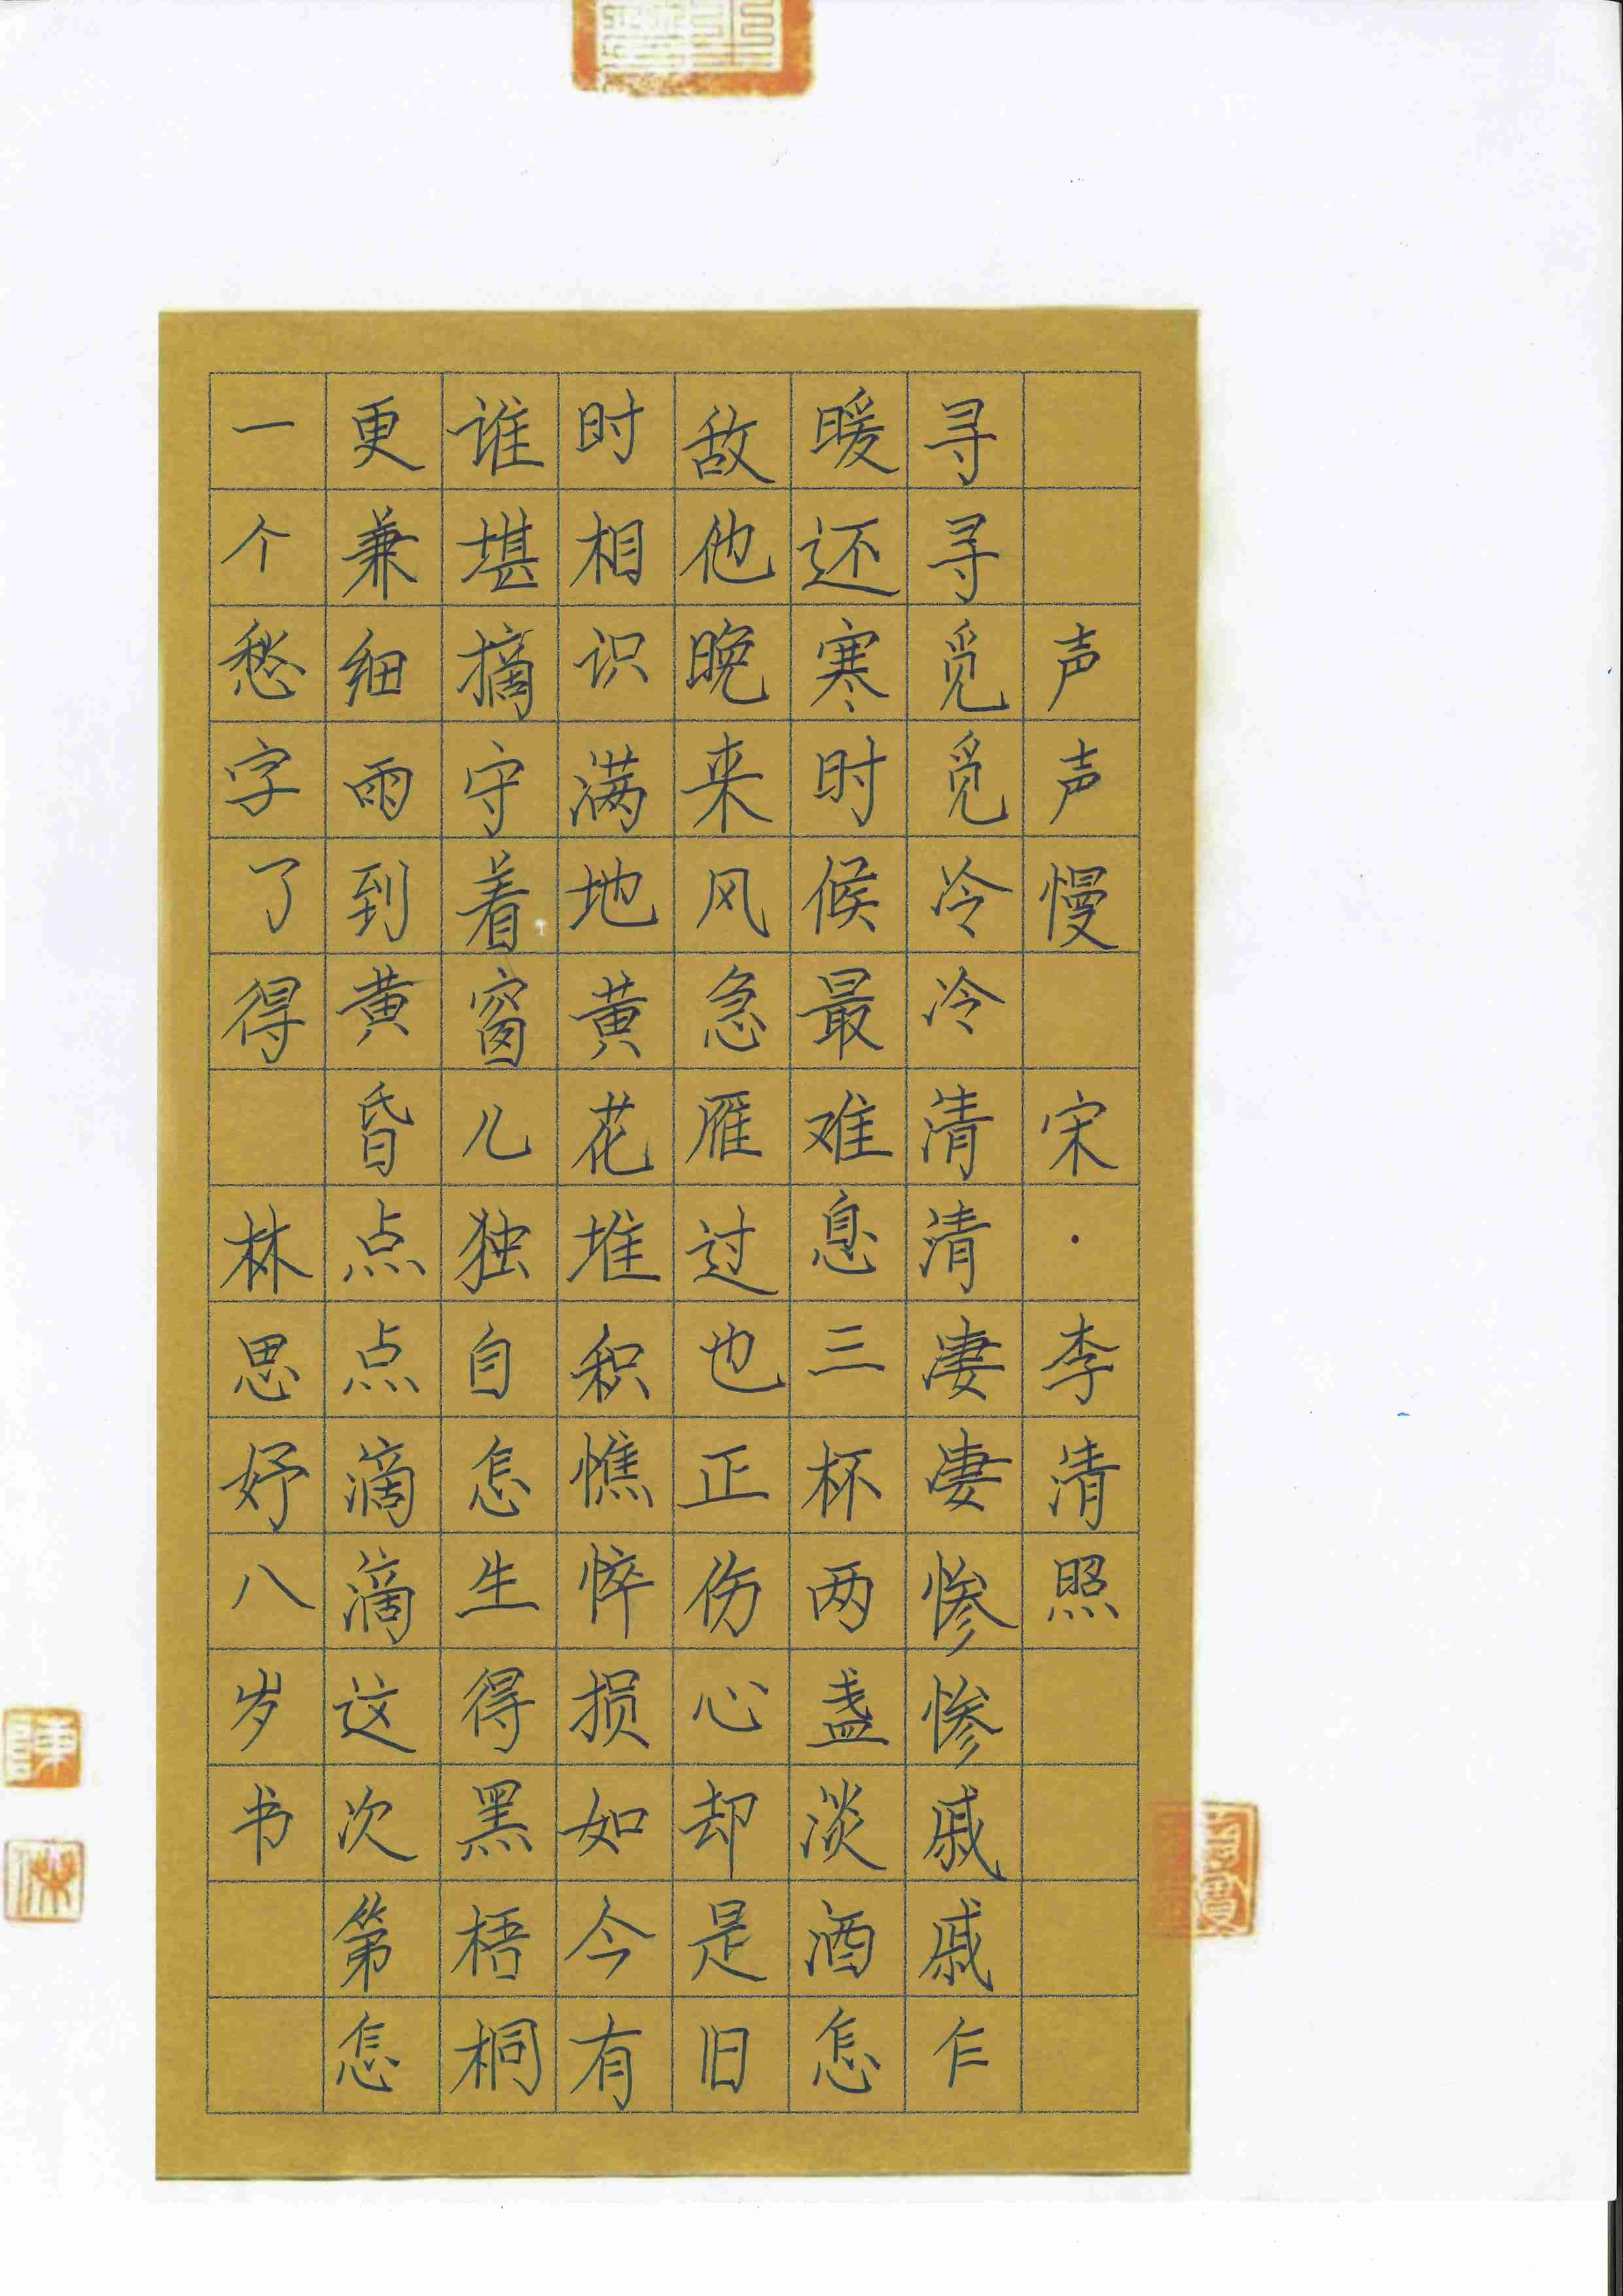 声声慢 宋·李清照
寻寻觅觅冷冷清清凄凄惨惨戚戚乍
暖还寒时候最难息三杯两盏淡酒怎
敌他晚来风急雁过也正伤心却是旧
时相识满地黄花堆积憔悴损如今有
谁堪摘守着窗儿独自怎生得黑梧桐
更兼细雨到黄昏点点滴滴这次第怎
一个愁字了得 林思妤八岁书